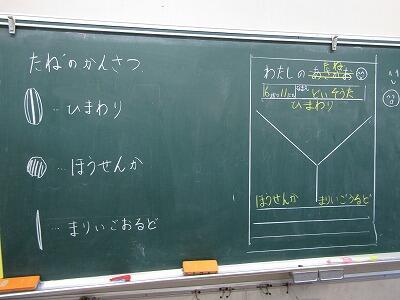 たねのかんさつ
…ひまわり
…ほうせんか
…まりいごおるど
わたしの たね あさがお
6がつ11にち なまえ といそうた
ひまわり
ほうせんか
まりいごうるど